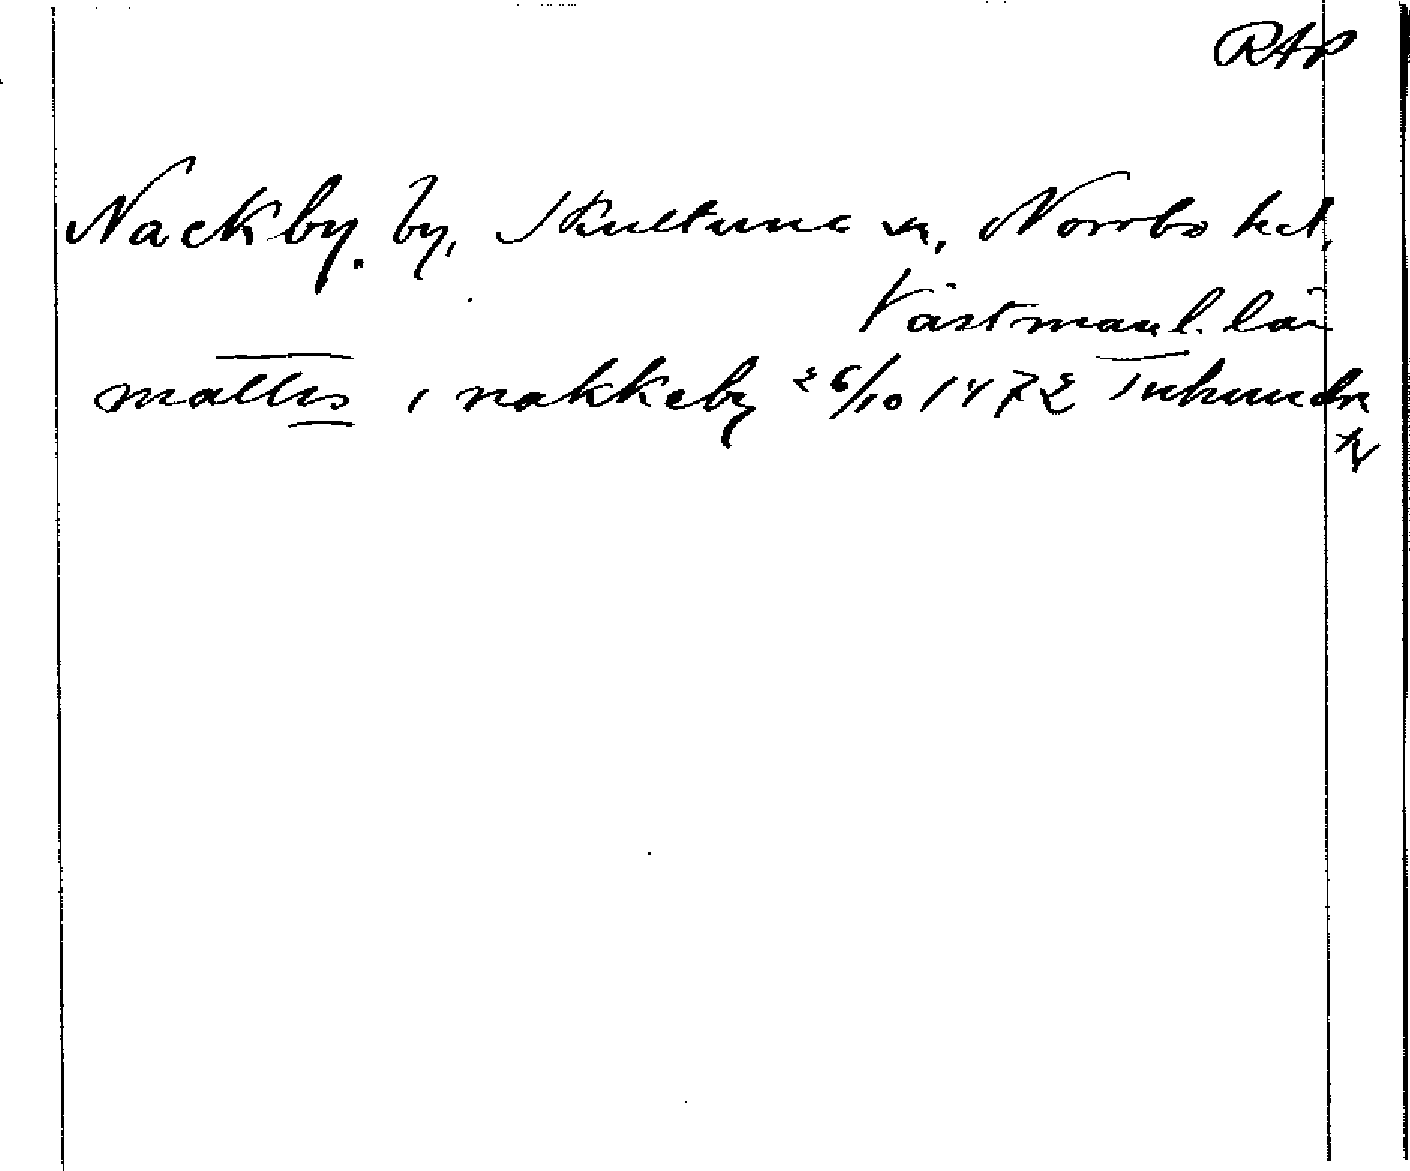 RAP
Nackby. by, Skultuna sn, Norrbo hd.
Västmanl. län
mattes i nakkeby 26/10 1472 Tuhundr